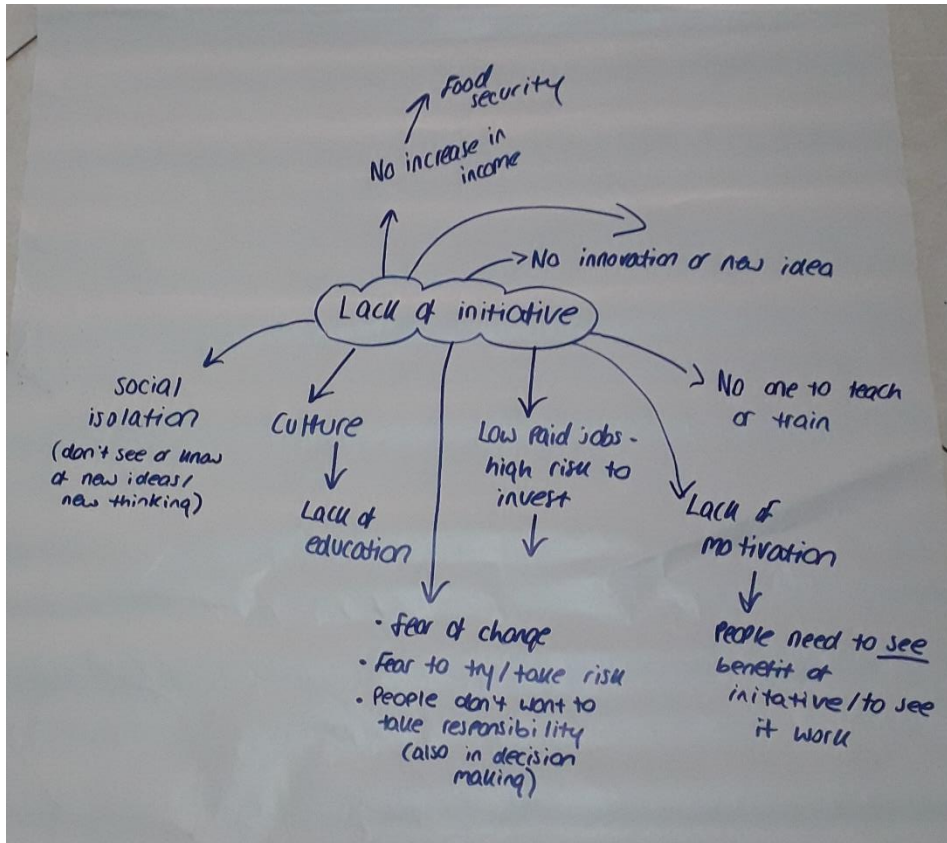 Food
security
No increase in
income
No innovation or new idea
Lack of initiative
social
isolation
(don't see or unaw
of new ideas/
new thinking)
Culture
Lack of
education
Low paid jobs -
high risk to
invest
No one to teach
or train
Lack of
motivation
People need to see
benefit of
initative/to see
it work
• Fear of change
• Fear to try/take risk
• People don't want to
take responsibility
(also in decision
making)